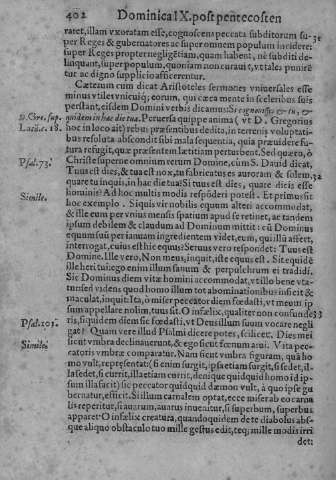 402 Dominica IX. post pentecosten
raret, illam vxoratam esse, cognoscens peccata subditorum su-
per Reges & gubernatores ac super omnem populum incidere:
super Reges propter negligētiam, quam habent, nē subditi de-
linquant, super populum, quoniam non curauit, vt tales punirē
tur ac digno supplicio afficerentur.
Cæterum cum dicat Aristoteles sermones vniuersales esse
minus vtiles vnicuiq;
eorum, qui cæca mente in sceleribus suis
perstant, eisdem Domini verbis dicamus: Si cognouisses & tu, &
D. Gre. sup. quidem in hac die tua. Peruersa quippe anima (vt D. Gregorius
Luc. c. 18. hoc in loco ait) rebus præsentibus dedita, in terrenis voluptati-
bus resoluta abscondit sibi mala sequentia, quia præuidere fu-
tura refugit, quæ præsentem lætitiam perturbent. Sed quæro, ô
Psal. 73. Christe superne omnium rerum Domine, cùm S. Dauid dicat,
Tuus est dies, & tua est nox, tu fabricatus es auroram & solem, 32
quare tu inquis, in hac die tua? Si tuus est dies, quare dicis esse
hominis? Ad hoc multis modis respōderi potest. Et primùm sit
Simile. hoc exemplo. Si quis vir nobilis equum alteri accommodat,
& ille eum per vnius mensis spatium apud se retinet, ac tandem
ipsum debilem & claudum ad Dominum mittit: cū Dominus
equum suū per ianuam ingredientem videt, eum, qui illū affert,
interrogat, cuius est hic equus? Seruus vero respondet: Tuus est
Domine. Ille vero, Non meus, inquit, iste equus est. Siquidē
ille heri tui: ego enim illum sanum & perpulchrum ei tradidi.
Sic Dominus diem vitæ homini accommodat, vt illo bene vta-
tur: sed videns quod homo illum tot abominationibus inficit &
maculat, inquit: Ita, ô miser peccator diem fœdasti, vt meum ip
sum appellare nolim, tuus sit. O infælix, qualiter non confunde 33
ris, siquidem diem sic fœdasti, vt Deus illum suum vocare negli
Psal. 101. gat? Quàm vere illud Psalmi dicere potes, scilicet, Dies mei
Simile: sicut vmbra declinauerunt, & ego sicut fœnum arui. Vita pec-
catoris vmbræ comparatur. Nam sicut vmbra figuram, quā ho
mo vult, repræsentat: (si enim surgit, ipsa etiam surgit, si sedet, il-
la sedet, si currit, illa etiam currit, denique quidquid homo id ip-
sum illa facit) sic peccator quidquid dæmon vult, à quo ipse gu
bernatur, efficit. Si illum carnalem optat, ecce miserab eo carna
lis reperitur, si auarum, auarus inuenitur, si superbum, superbus
apparet. O infælix creatura, quando quidem de te diabolus abs-
que aliquo obstaculo tuo mille gestus edit, teq; mille modis irri
det: